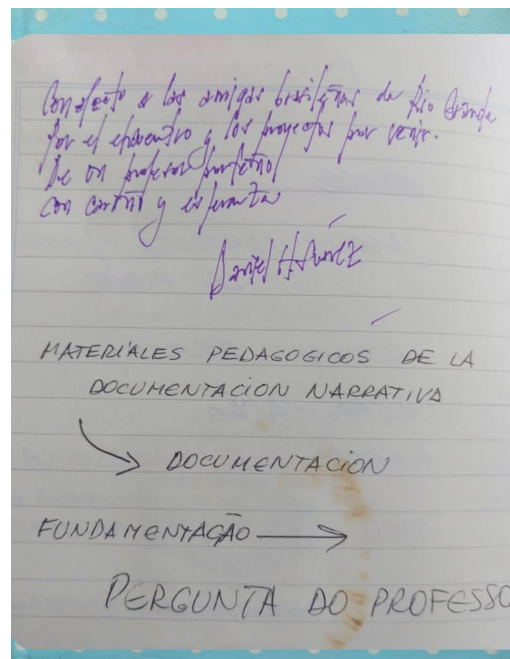 Con afecto a las amigas brasileñas de Rio Grande
por el encuentro y los proyectos por venir.
De un profesor porteño
con cariño y esperanza
Daniel H. Suárez
MATERIALES PEDAGOGICOS DE LA
DOCUMENTACION NARRATIVA
DOCUMENTACION
FUNDAMENTAÇÃO
PERGUNTA DO PROFESSO